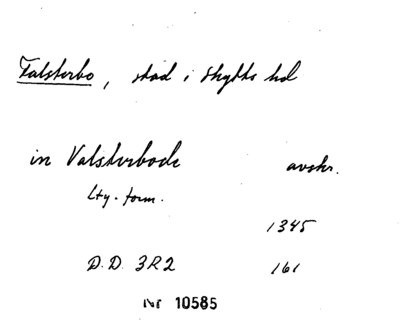 Falsterbo, stad i Skytts hd
in Valsterbode avskr.
Lty. form.
1345
D.D. 3R2 161
Nr 10585